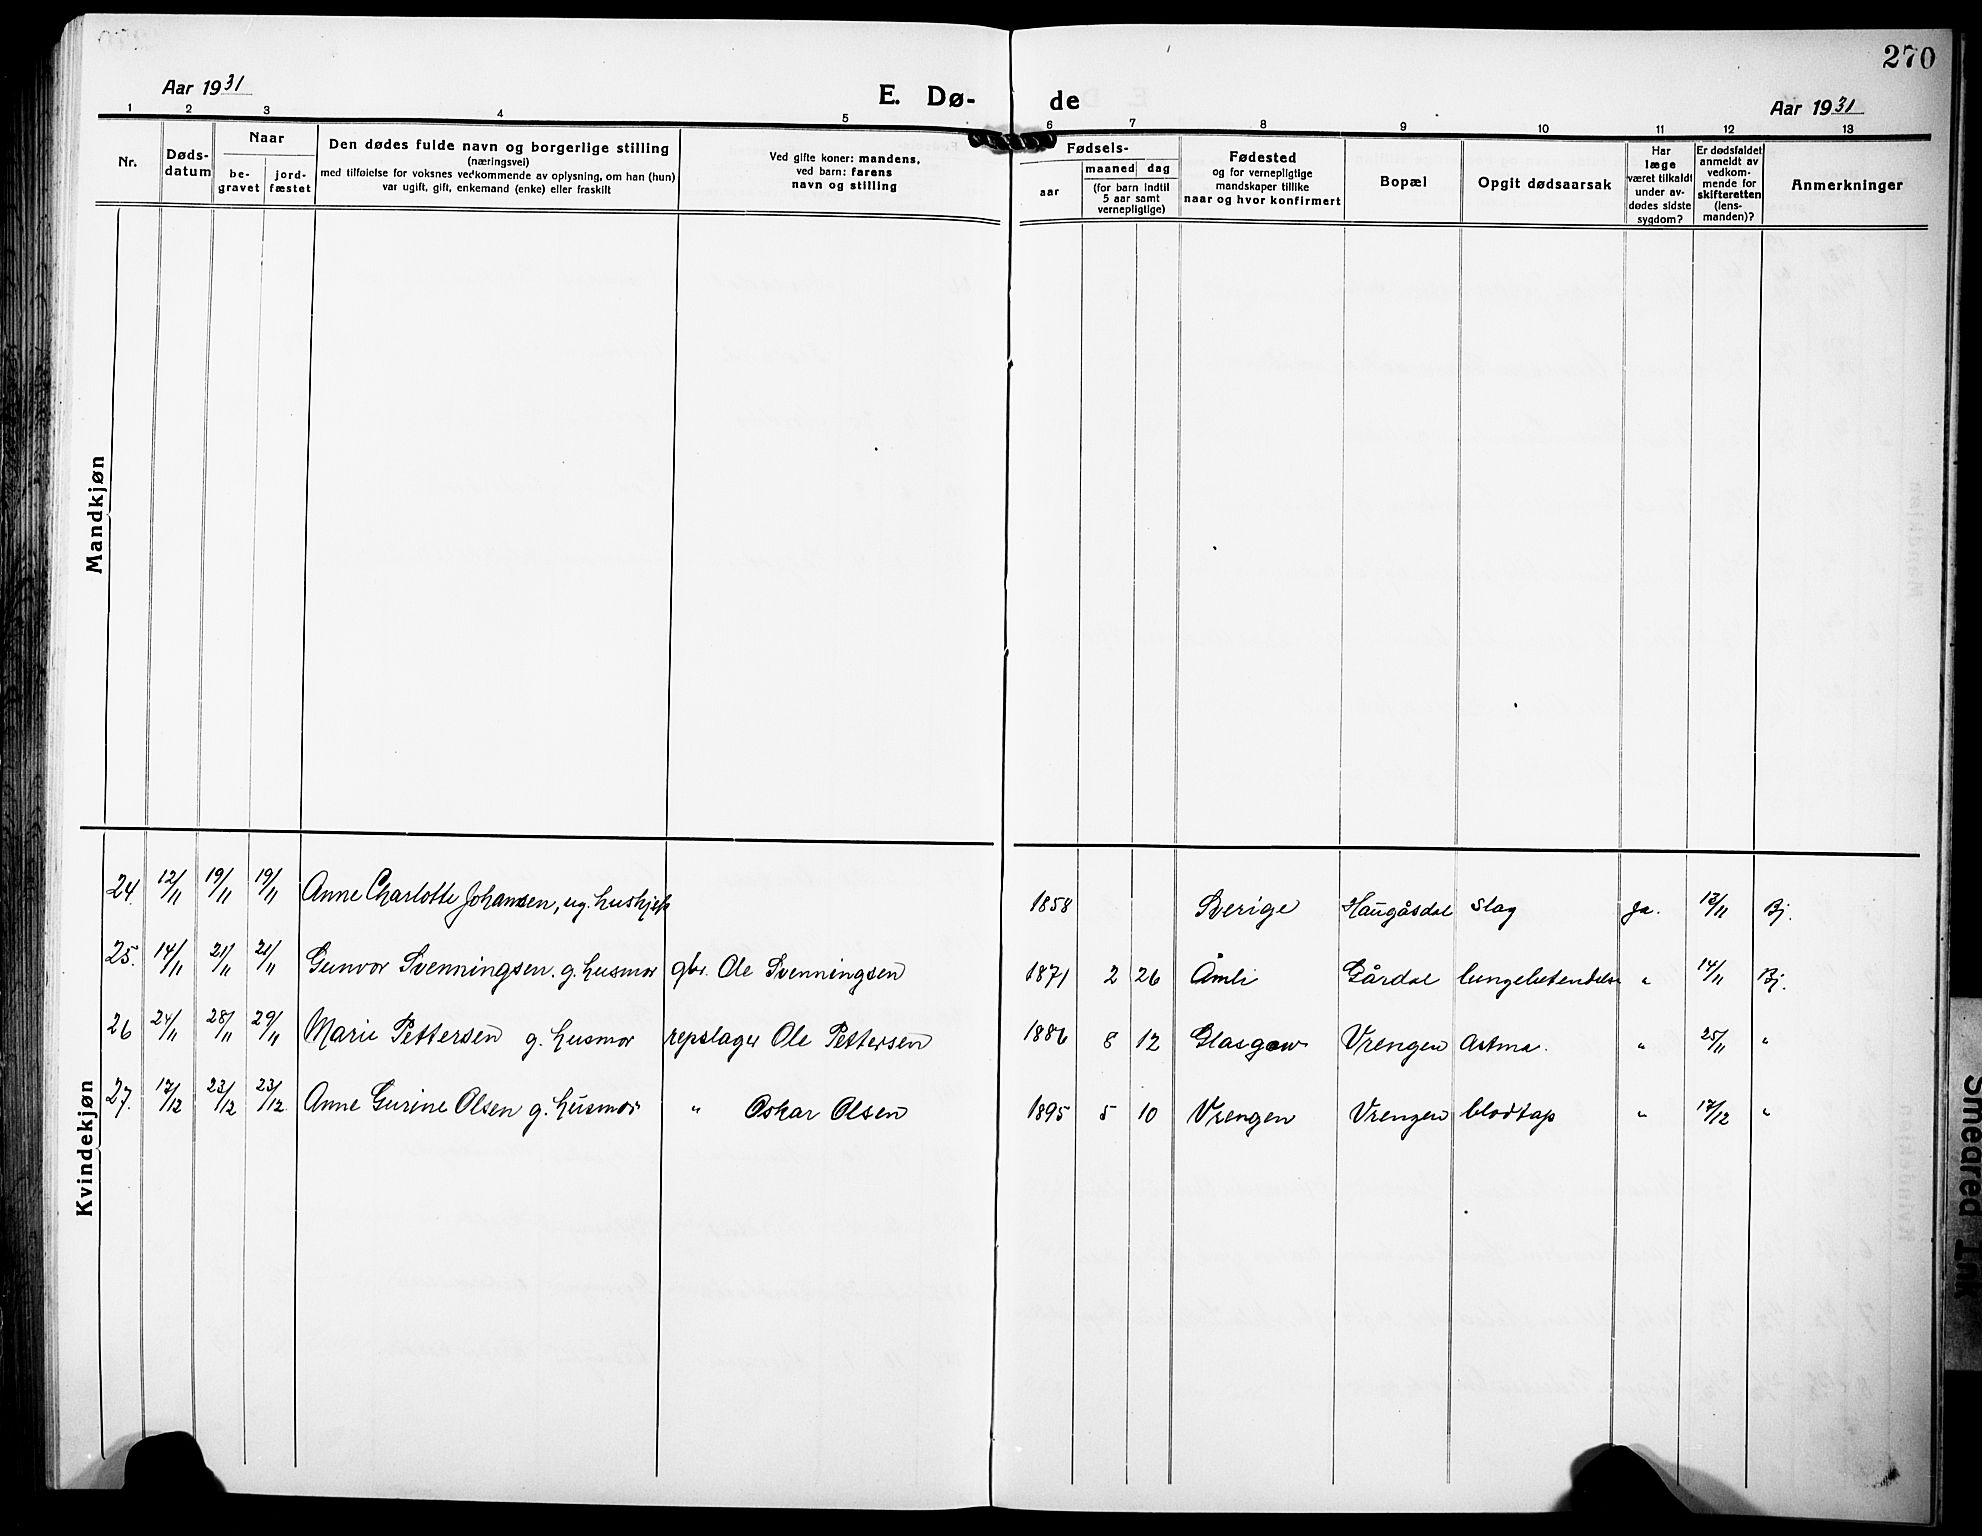 270
Aar 1931
E. Dø-
de
Aar 1931
1 2 3 4 5 6 7 8 9 10 11 12 13
Nr.
Døds-
datum
Naar
be-
gravet
jord-
fæstet
Den dødes fulde navn og borgerlige stilling
(næringsvei)
med tilføielse for voksnes vedkommende av oplysning, om han (hun)
var ugift, gift, enkemand (enke) eller fraskilt
Ved gifte koner: mandens,
ved barn: farens
navn og stilling
Fødsels-
aar
maaned dag
(for barn indtil
5 aar samt
vernepligtige)
Fødested
og for vernepligtige
mandskaper tillike
naar og hvor konfirmert
Bopæl
Opgit dødsaarsak
Har
læge
været tilkaldt
under av-
dødes sidste
sygdom?
Er dødsfaldet
anmeldt av
vedkom-
mende for
skifteretten
(lens-
manden)?
Anmerkninger
Mandkjøn
Kvindekjøn
24. 12/11 19/11 19/11 Anne Charlotte Johansen, ug. hushjelp 1858 Sverige Haugåsdal slag ja. 12/11 Bj.
25. 14/11 21/11 21/11 Gunvor Svenningsen. g. husmor gbr. Ole Svenningsen 1871 2 26 Åmli Gårdal lungebetendelse " 14/11 Bj.
26 24/11 28/11 29/11 Marie Pettersen g. husmor repslager Ole Pettersen 1886 8 12 Glasgow Vrengen Astma. " 25/11 "
27. 17/12 23/12 23/12 Anne Gurine Olsen g. husmor " Oskar Olsen 1895 5 10 Vrengen Vrengen blodtap " 17/12 "
Smeared Ink